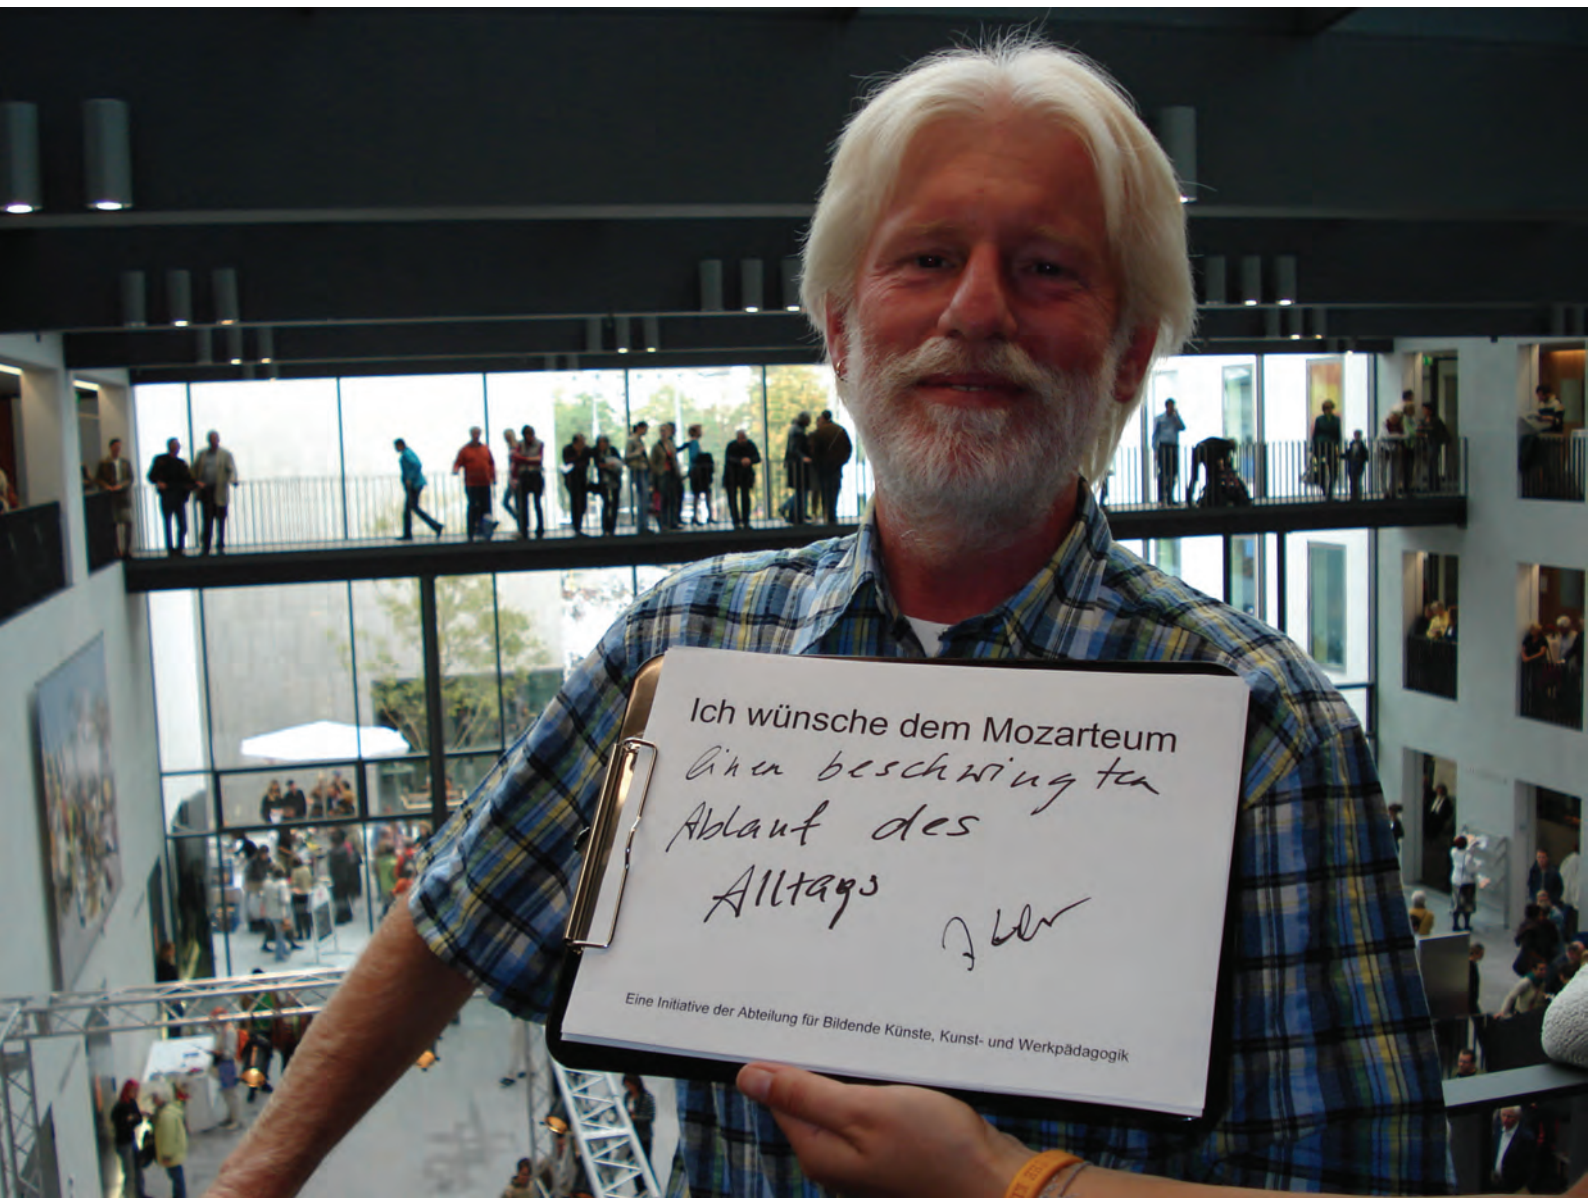 Ich wünsche dem Mozarteum
einen beschwingten
Ablauf des
Alltags
Eine Initiative der Abteilung für Bildende Künste, Kunst- und Werkpädagogik